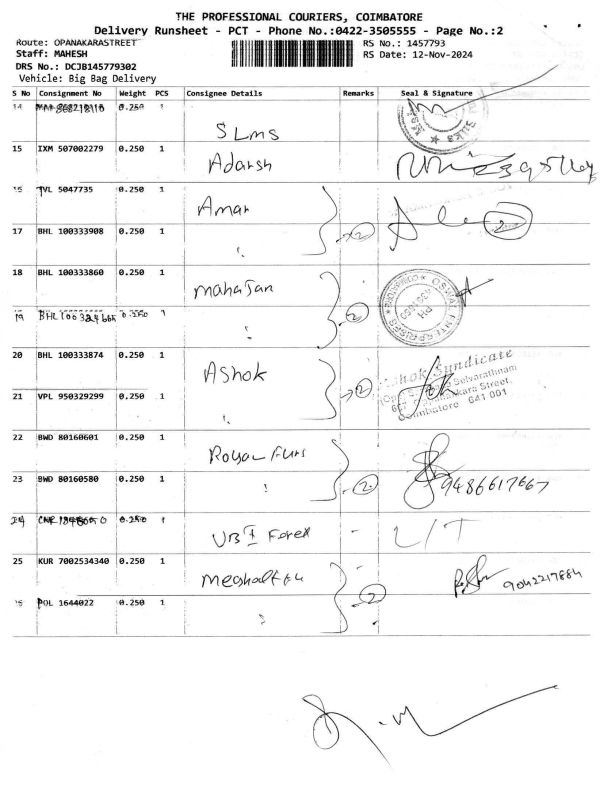 THE PROFESSIONAL COURIERS, COIMBATORE
Delivery Runsheet - PCT - Phone No.:0422-3505555 - Page No.:2
Route: OPANAKARASTREET
RS No.: 1457793
Staff: MAHESH
RS Date: 12-Nov-2024
DRS No.: DCJB145779302
Vehicle: Big Bag Delivery
S No Consignment No Weight PCS Consignee Details Remarks Seal & Signature
14 0.250 1
SLMS
15 IXM 507002279 0.250 1
Adarsh
16 TVL 5047735 0.250 1
Aman 2
17 BHL 100333908 0.250 1
2
18 BHL 100333860 0.250 1
mahajan
OSWAL ENTERPRISES
19 BHL 0.250 1
2
20 BHL 100333874 0.250 1
Ashok 2
Ashok Syndicate
Selvarathnam
Street,
Coimbatore 641 001
21 VPL 950329299 0.250 1
22 BWD 80160601 0.250 1
Royal Furs
23 BWD 80160580 0.250 1
2 9486617667
24 0.250 1
- L/T
25 KUR 7002534340 0.250 1
9042217884
26 POL 1644022 0.250 1
2